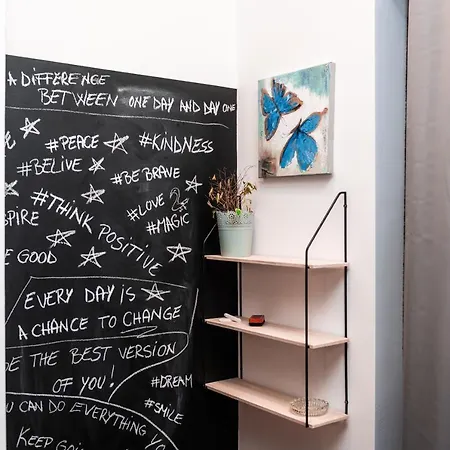 A DIFFERENCE
BETWEEN ONE DAY AND DAY ONE
#PEACE #KINDNESS
#BELIVE
#BE BRAVE
#LOVE
#MAGIC
#THINK POSITIVE
SPIRE
E GOOD
EVERY DAY IS
A CHANCE TO CHANGE
BE THE BEST VERSION
OF YOU!
#DREAM
#SMILE
YOU CAN DO EVERYTHING YOU
KEEP GOING